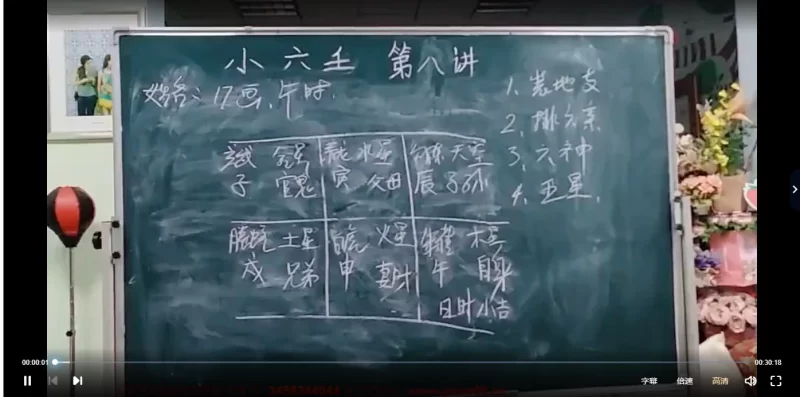 小六壬 第八讲
姓名：17画、午时.
1、装地支
2、排六亲
3、六神
4、五星.
金星
水星
天星
子 官鬼
寅 父母
辰 子孙
土星
火星
木星
戌 兄弟
申 妻财
午 自身
日时小吉
00:00:01
00:30:18
字幕
倍速
高清